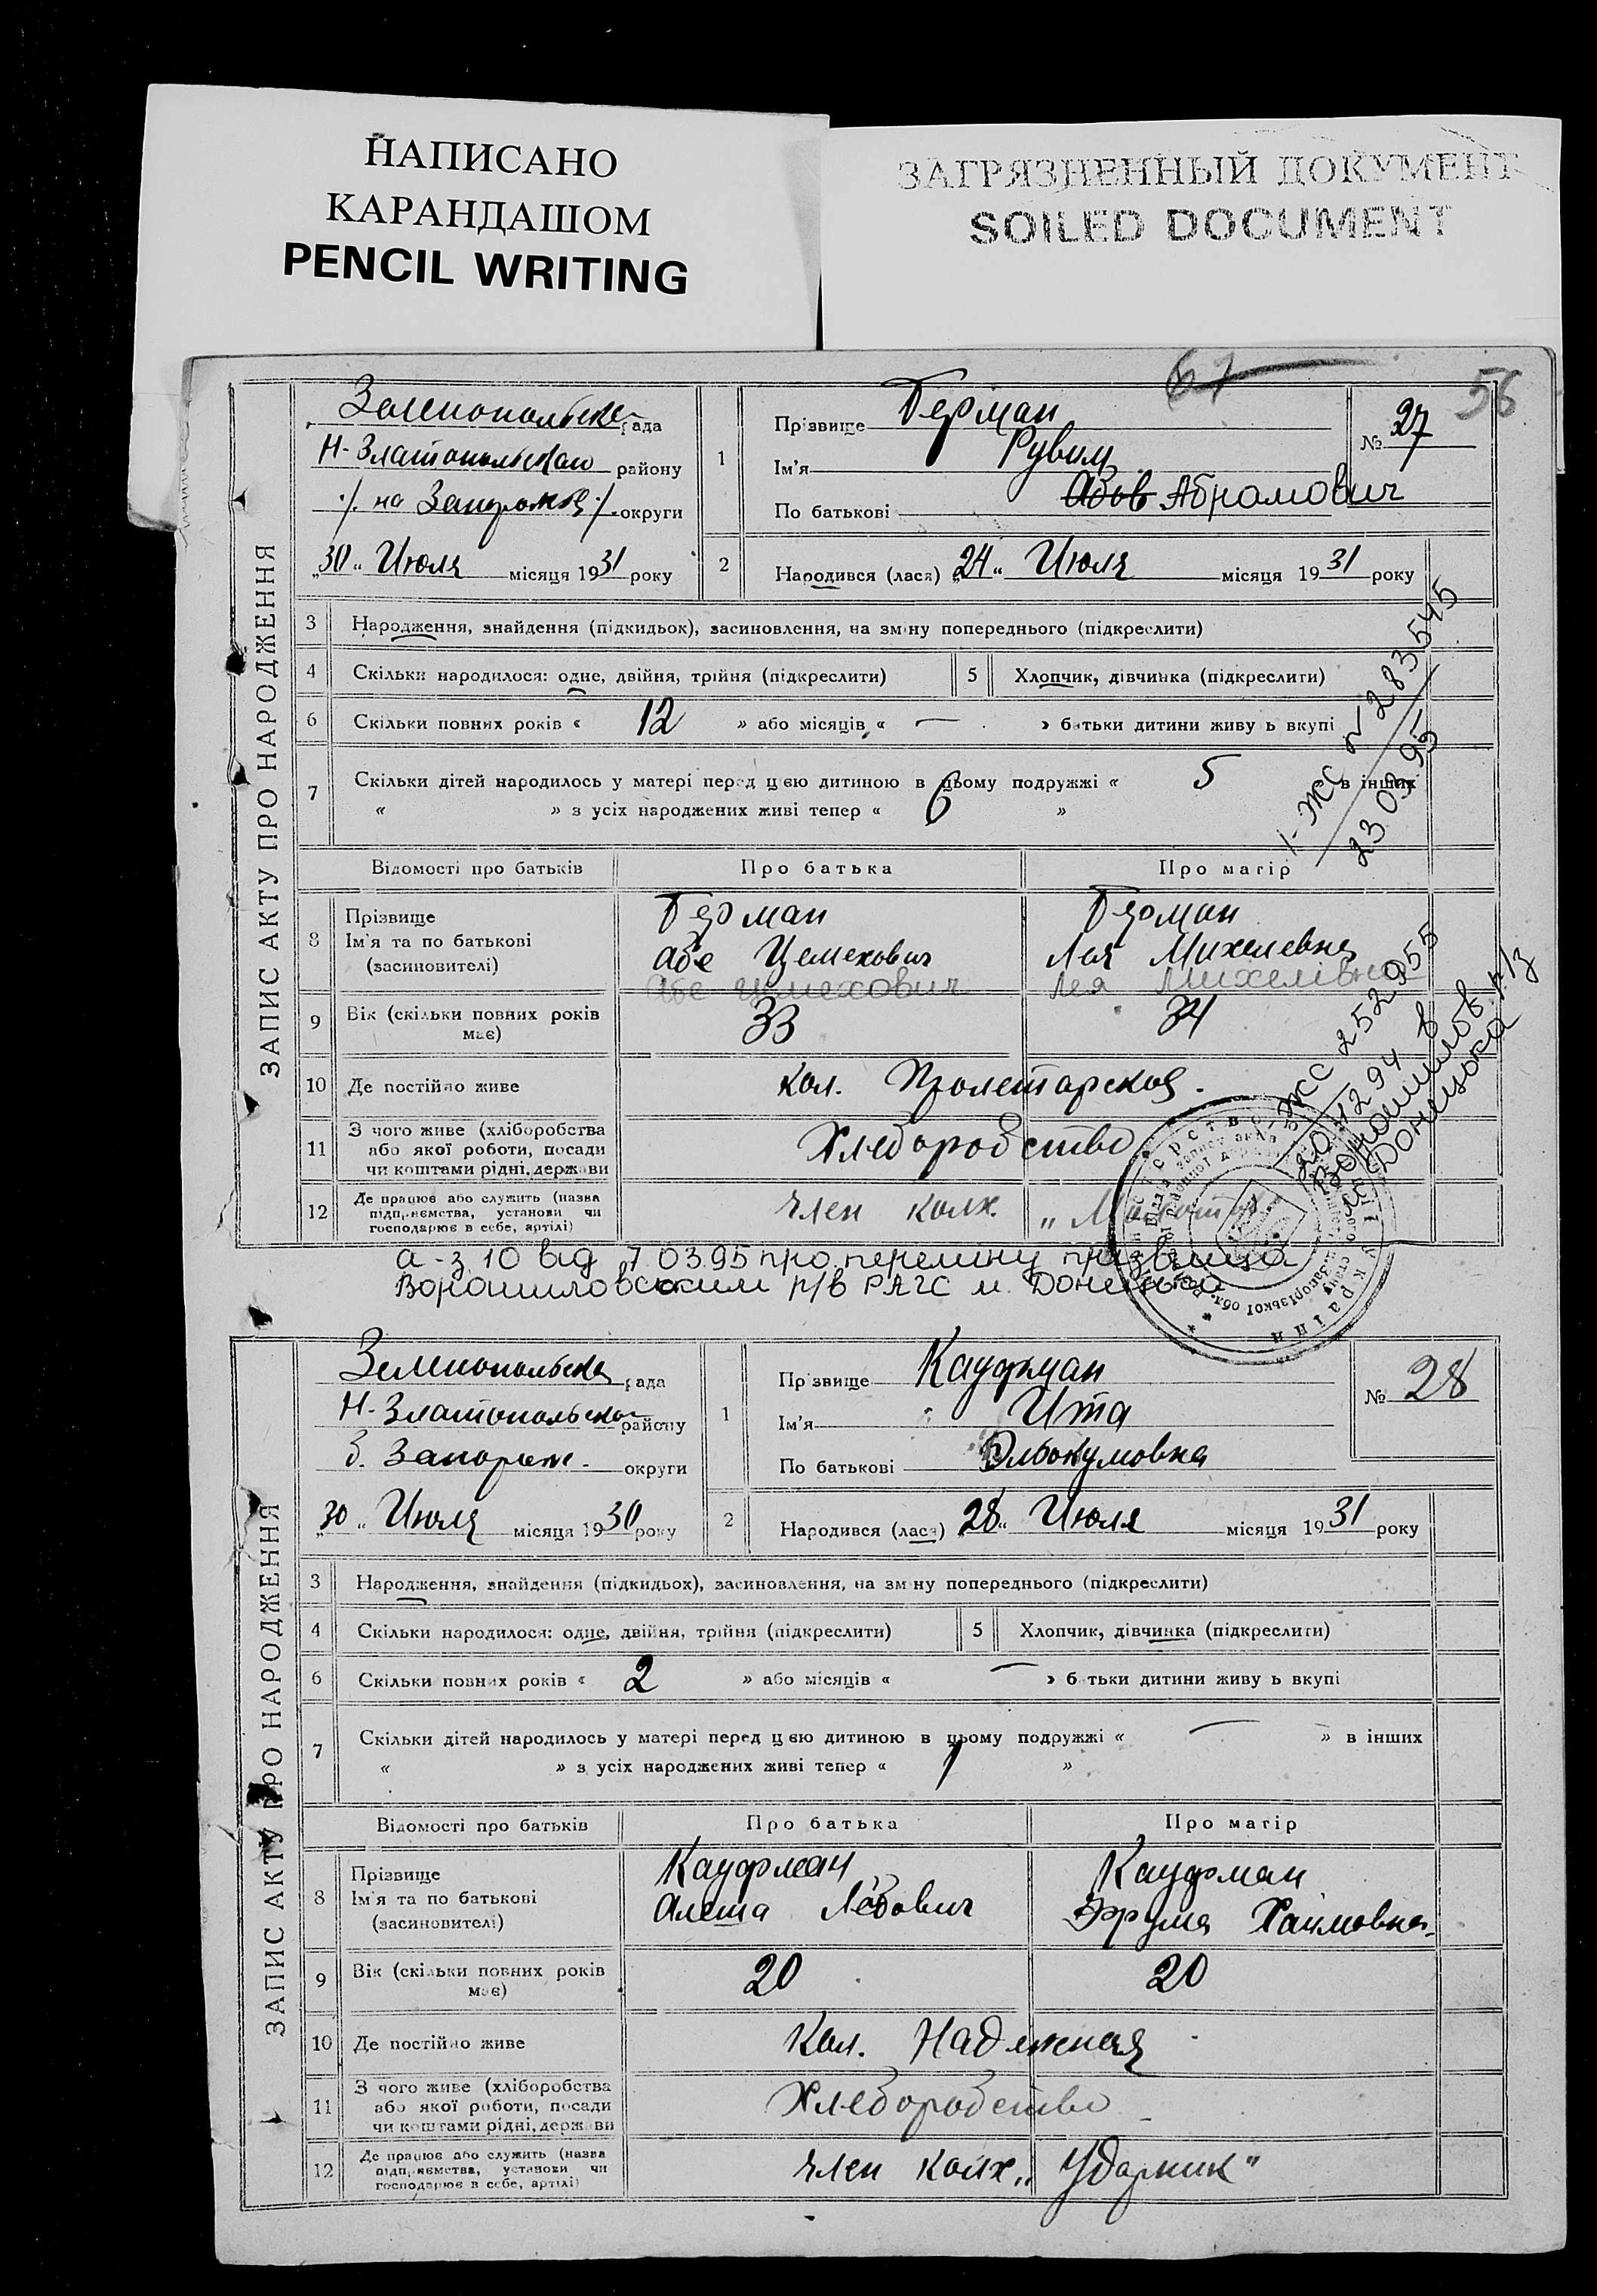 НАПИСАНО
КАРАНДАШОМ
PENCIL WRITING
ЗАГРЯЗНЕННЫЙ ДОКУМЕНТ
SOILED DOCUMENT
67
56
ЗАПИС АКТУ ПРО НАРОДЖЕННЯ
рада
району
округи
„30“ Июля місяця 1931 року
1
Прізвище Герман
Ім'я Рувим
По батькові Абов Абрамович
№ 27
2
Народився (лася) „24“ Июля місяця 1931 року
3 Народження, знайдення (підкидьок), засиновлення, на зміну попереднього (підкреслити)
4 Скільки народилося: одне, двійня, трійня (підкреслити)
5 Хлопчик, дівчинка (підкреслити)
6 Скільки повних років « 12 » або місяців « — » батьки дитини живуть вкупі
7 Скільки дітей народилось у матері перед цією дитиною в цьому подружжі « 5 » в інших
« » з усіх народжених живі тепер « 6 »
Відомості про батьків Про батька Про матір
8 Прізвище Герман Герман
Ім'я та по батькові Абе Цемехович Лея Михелевна
(засиновителі) Абе Цемехович Лея Михелівна
9 Вік (скільки повних років має) 33 34
10 Де постійно живе кол. Пролетарская.
11 З чого живе (хліборобства
або якої роботи, посади
чи коштами рідні, держави
Хлеборобство
12 Де працює або служить (назва
підприємства, установи чи
господарює в себе, артілі)
член колх.
1-ЖС № 283545
23 03 95
ЖС 252955
20 12 94 в
Ворошилов р/з
м Донецька
а-з 10 від 7 03.95 про переміну прізвища
Ворошиловським р/в РАГС м. Донецька
ЗАПИС АКТУ ПРО НАРОДЖЕННЯ
рада
району
З. Запорож. округи
„30“ Июля місяця 1930 року
1
Прізвище Кауфман
Ім'я Ита
По батькові
№ 28
2
Народився (лася) „28“ Июля місяця 1931 року
3 Народження, знайдення (підкидьок), засиновлення, на зміну попереднього (підкреслити)
4 Скільки народилося: одне, двійня, трійня (підкреслити)
5 Хлопчик, дівчинка (підкреслити)
6 Скільки повних років « 2 » або місяців « — » батьки дитини живуть вкупі
7 Скільки дітей народилось у матері перед цією дитиною в цьому подружжі « — » в інших
« » з усіх народжених живі тепер « 1 »
Відомості про батьків Про батька Про матір
8 Прізвище Кауфман Кауфман
Ім'я та по батькові Фрума Хаимовна
(засиновителі)
9 Вік (скільки повних років має) 20 20
10 Де постійно живе Кол. Надежная
11 З чого живе (хліборобства
або якої роботи, посади
чи коштами рідні, держави
Хлеборобство
12 Де працює або служить (назва
підприємства, установи чи
господарює в себе, артілі)
член колх. „Ударник“